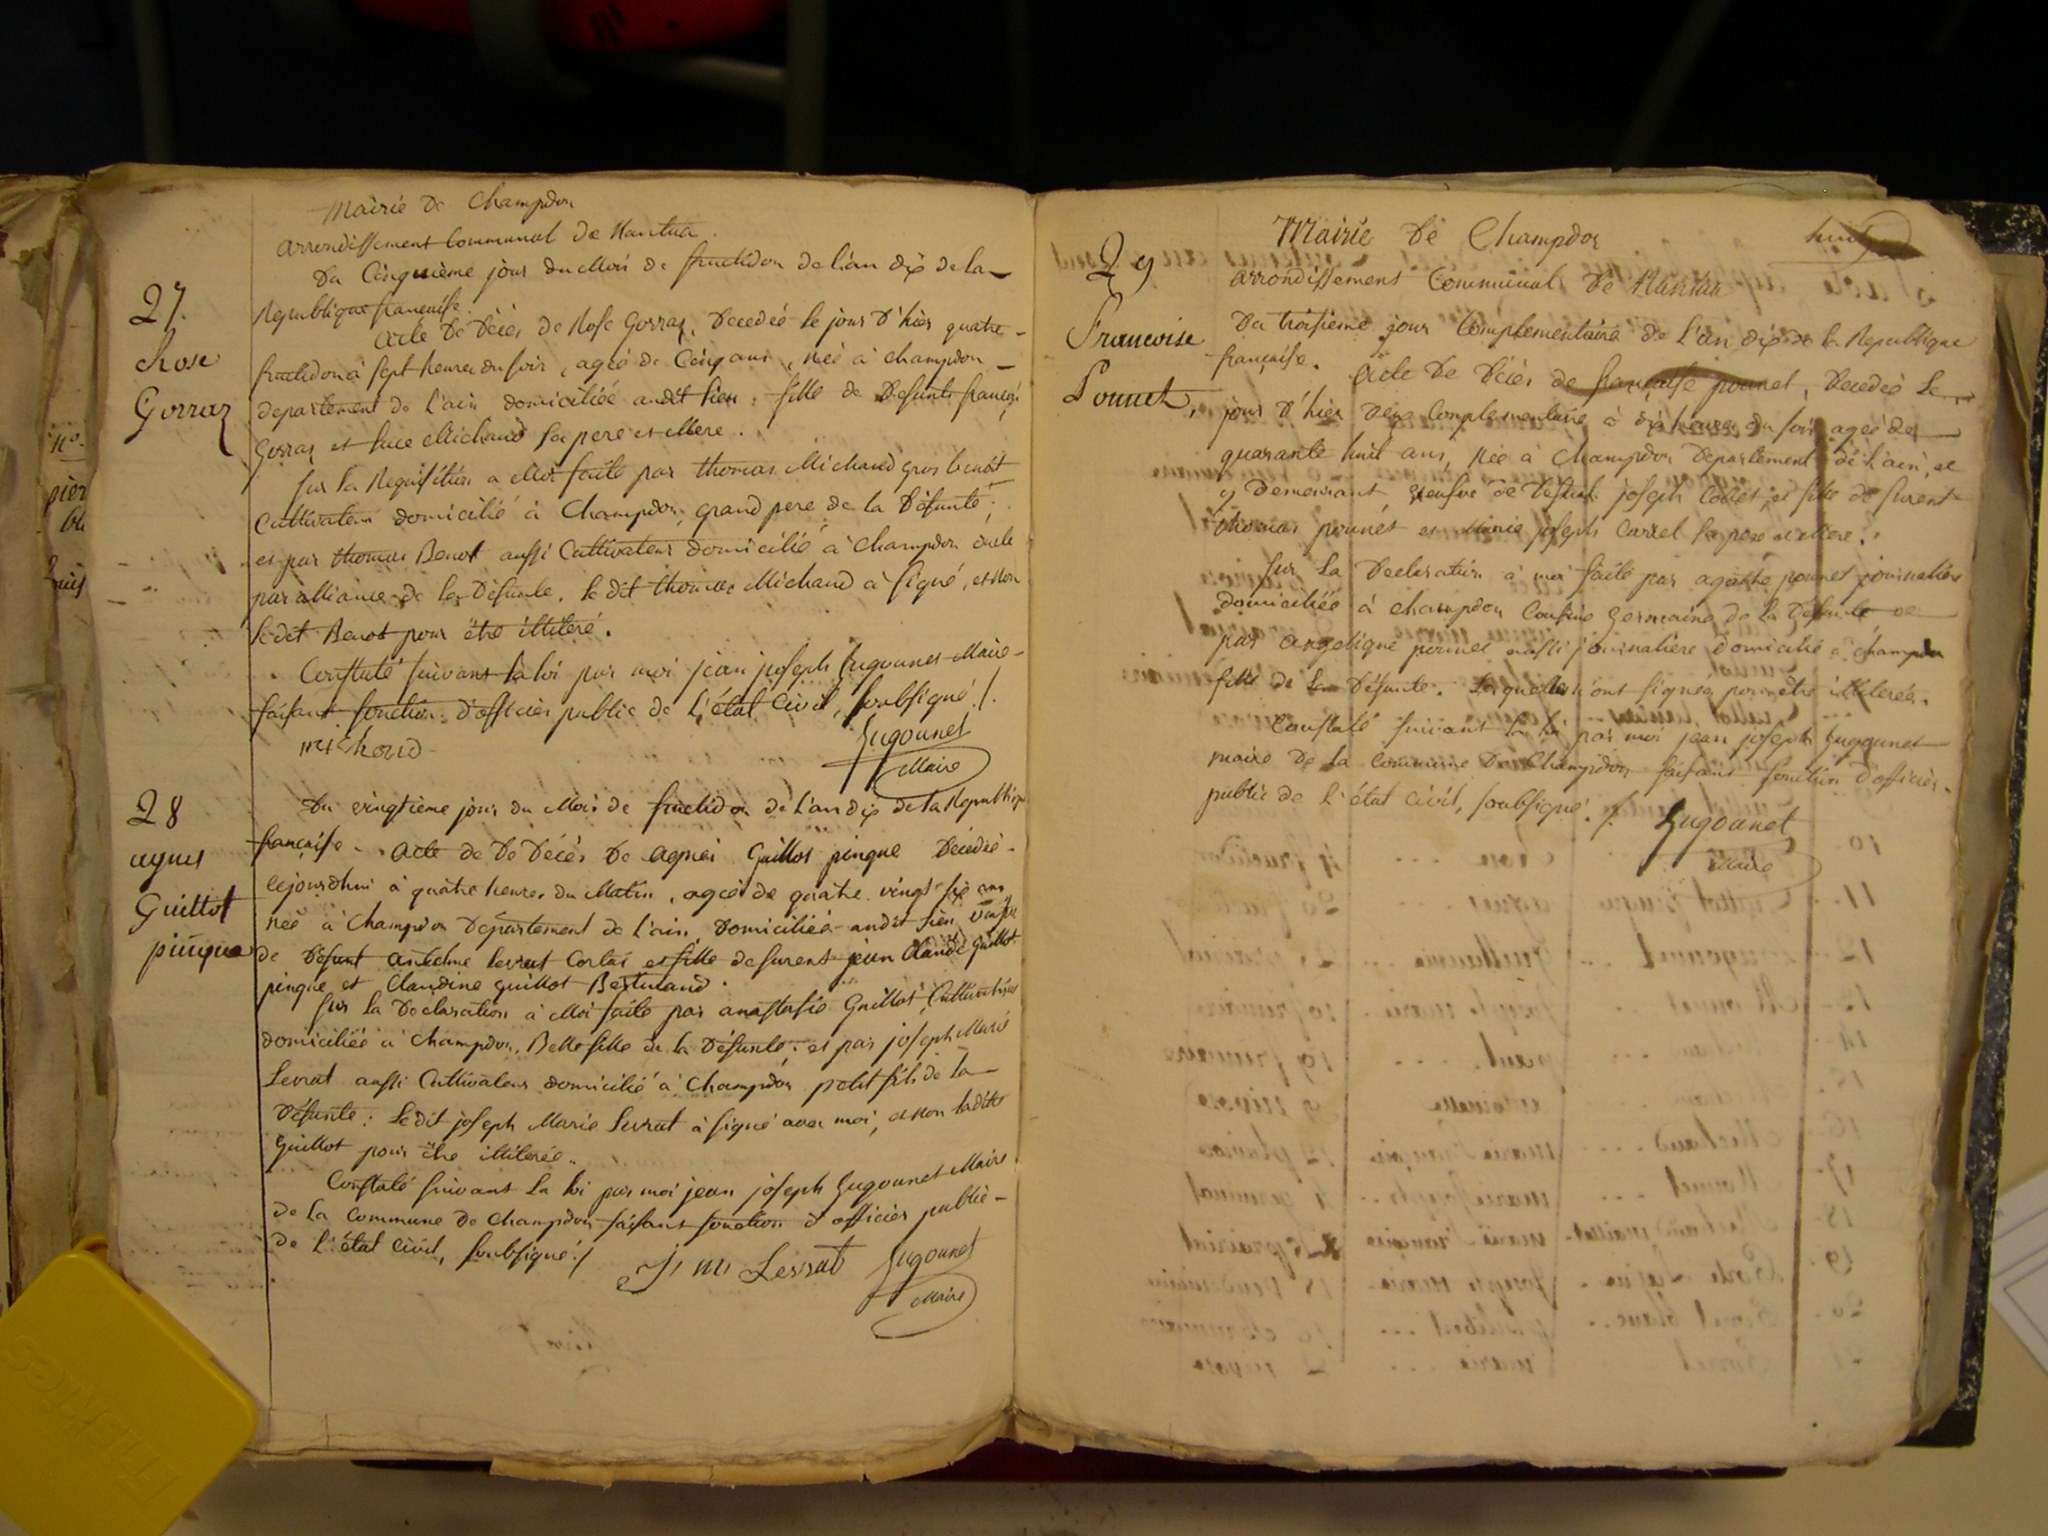 Mairie De Champdor
arrondissement Communal de Nantua.
Du Cinquième jour du Mois de fructidor de l'an dix de la
Republique française.
acte De Décès de Rose Gorraz, Decedée le jour d'hier quatre
fructidor à sept heures du soir, agée de Cinq ans, née à champdor
departement de l'ain domiciliée audit lieu, fille de Defunts françois
Gorraz et Luce Michaud sa pere et Mere.
sur la Requisition a Moi faite par thomas Michaud gros benoit
Cultivateur domicilié à Champdor, grand pere de la Défunte,
et par thomas Benot aussi Cultivateur domicilié à champdor oncle
par alliance de la Défunte. le dit thomas Michaud à signé, et non
le dit Benot pour être illiteré.
Constaté suivant la loi par moi jean joseph Gugounet Maire
faisant fonction d'officier public de L'état Civil, soubsigné ./.
Gugounet
Maire
27.
Rose
Gorraz
28
agnes
Guillot
pinque
Du vingtième jour du Mois de fructidor de L'an dix de la Republique
française. acte de De Décés De agnes Guillot pinque Décédée
cejourdhui à quatre heures du Matin, agée de quatre vingt six ans
née à Champdor Département de l'ain, Domiciliée audit lieu, veuve
de Defunt antelme levrat et fille de furent jean Claude guillot
pinque et Claudine guillot Bertrand.
sur la Declaration à Moi faite par anastasie Guillot, Cultivatrice
domiciliée à Champdor, Belle fille de la Défunte; et par joseph Marie
Levrat aussi Cultivateur domicilié à Champdor petit fils de la
Défunte: Le dit joseph Marie Levrat à signé avec moi, et non ladite
Guillot pour être illiterée.
Constaté suivant La loi par moi jean joseph Gugounet Maire
de La Commune De Champdor faisant fonction d'officier public
de L'état Civil, soubsigné ./
J M Levrat Gugounet
Maire
Mairie De Champdor
arrondissement Communal De Nantua
29
Francoise
Ponnet,
Du troisieme jour Complementaire de L'an dix de la Republique
française. Acte De Décès de française ponnet, Decedée Le
jour d'hier Complementaire à dix heures du soir, agée de
quarante huit ans, née à Champdor Departement de L'ain, et
y Demeurant, veufve De Defunt joseph et fille de furent
thomas ponnet et Marie joseph Carrel sa pere et Mere.
sur La Declaration à moi faite par agathe ponnet journaliere
domiciliée à champdor Cousine germaine de La Défunte, et
par angelique ponnet aussi journaliere domicilié à champdor
fille de La Défunte. Lesquelles n'ont signée pour être illiterées.
Constaté suivant la loi par moi jean joseph Gugounet
maire De La Commune De Champdor faisant fonction d'officier
public de l'état Civil, soubsigné ./.
Gugounet
Maire
THERMES